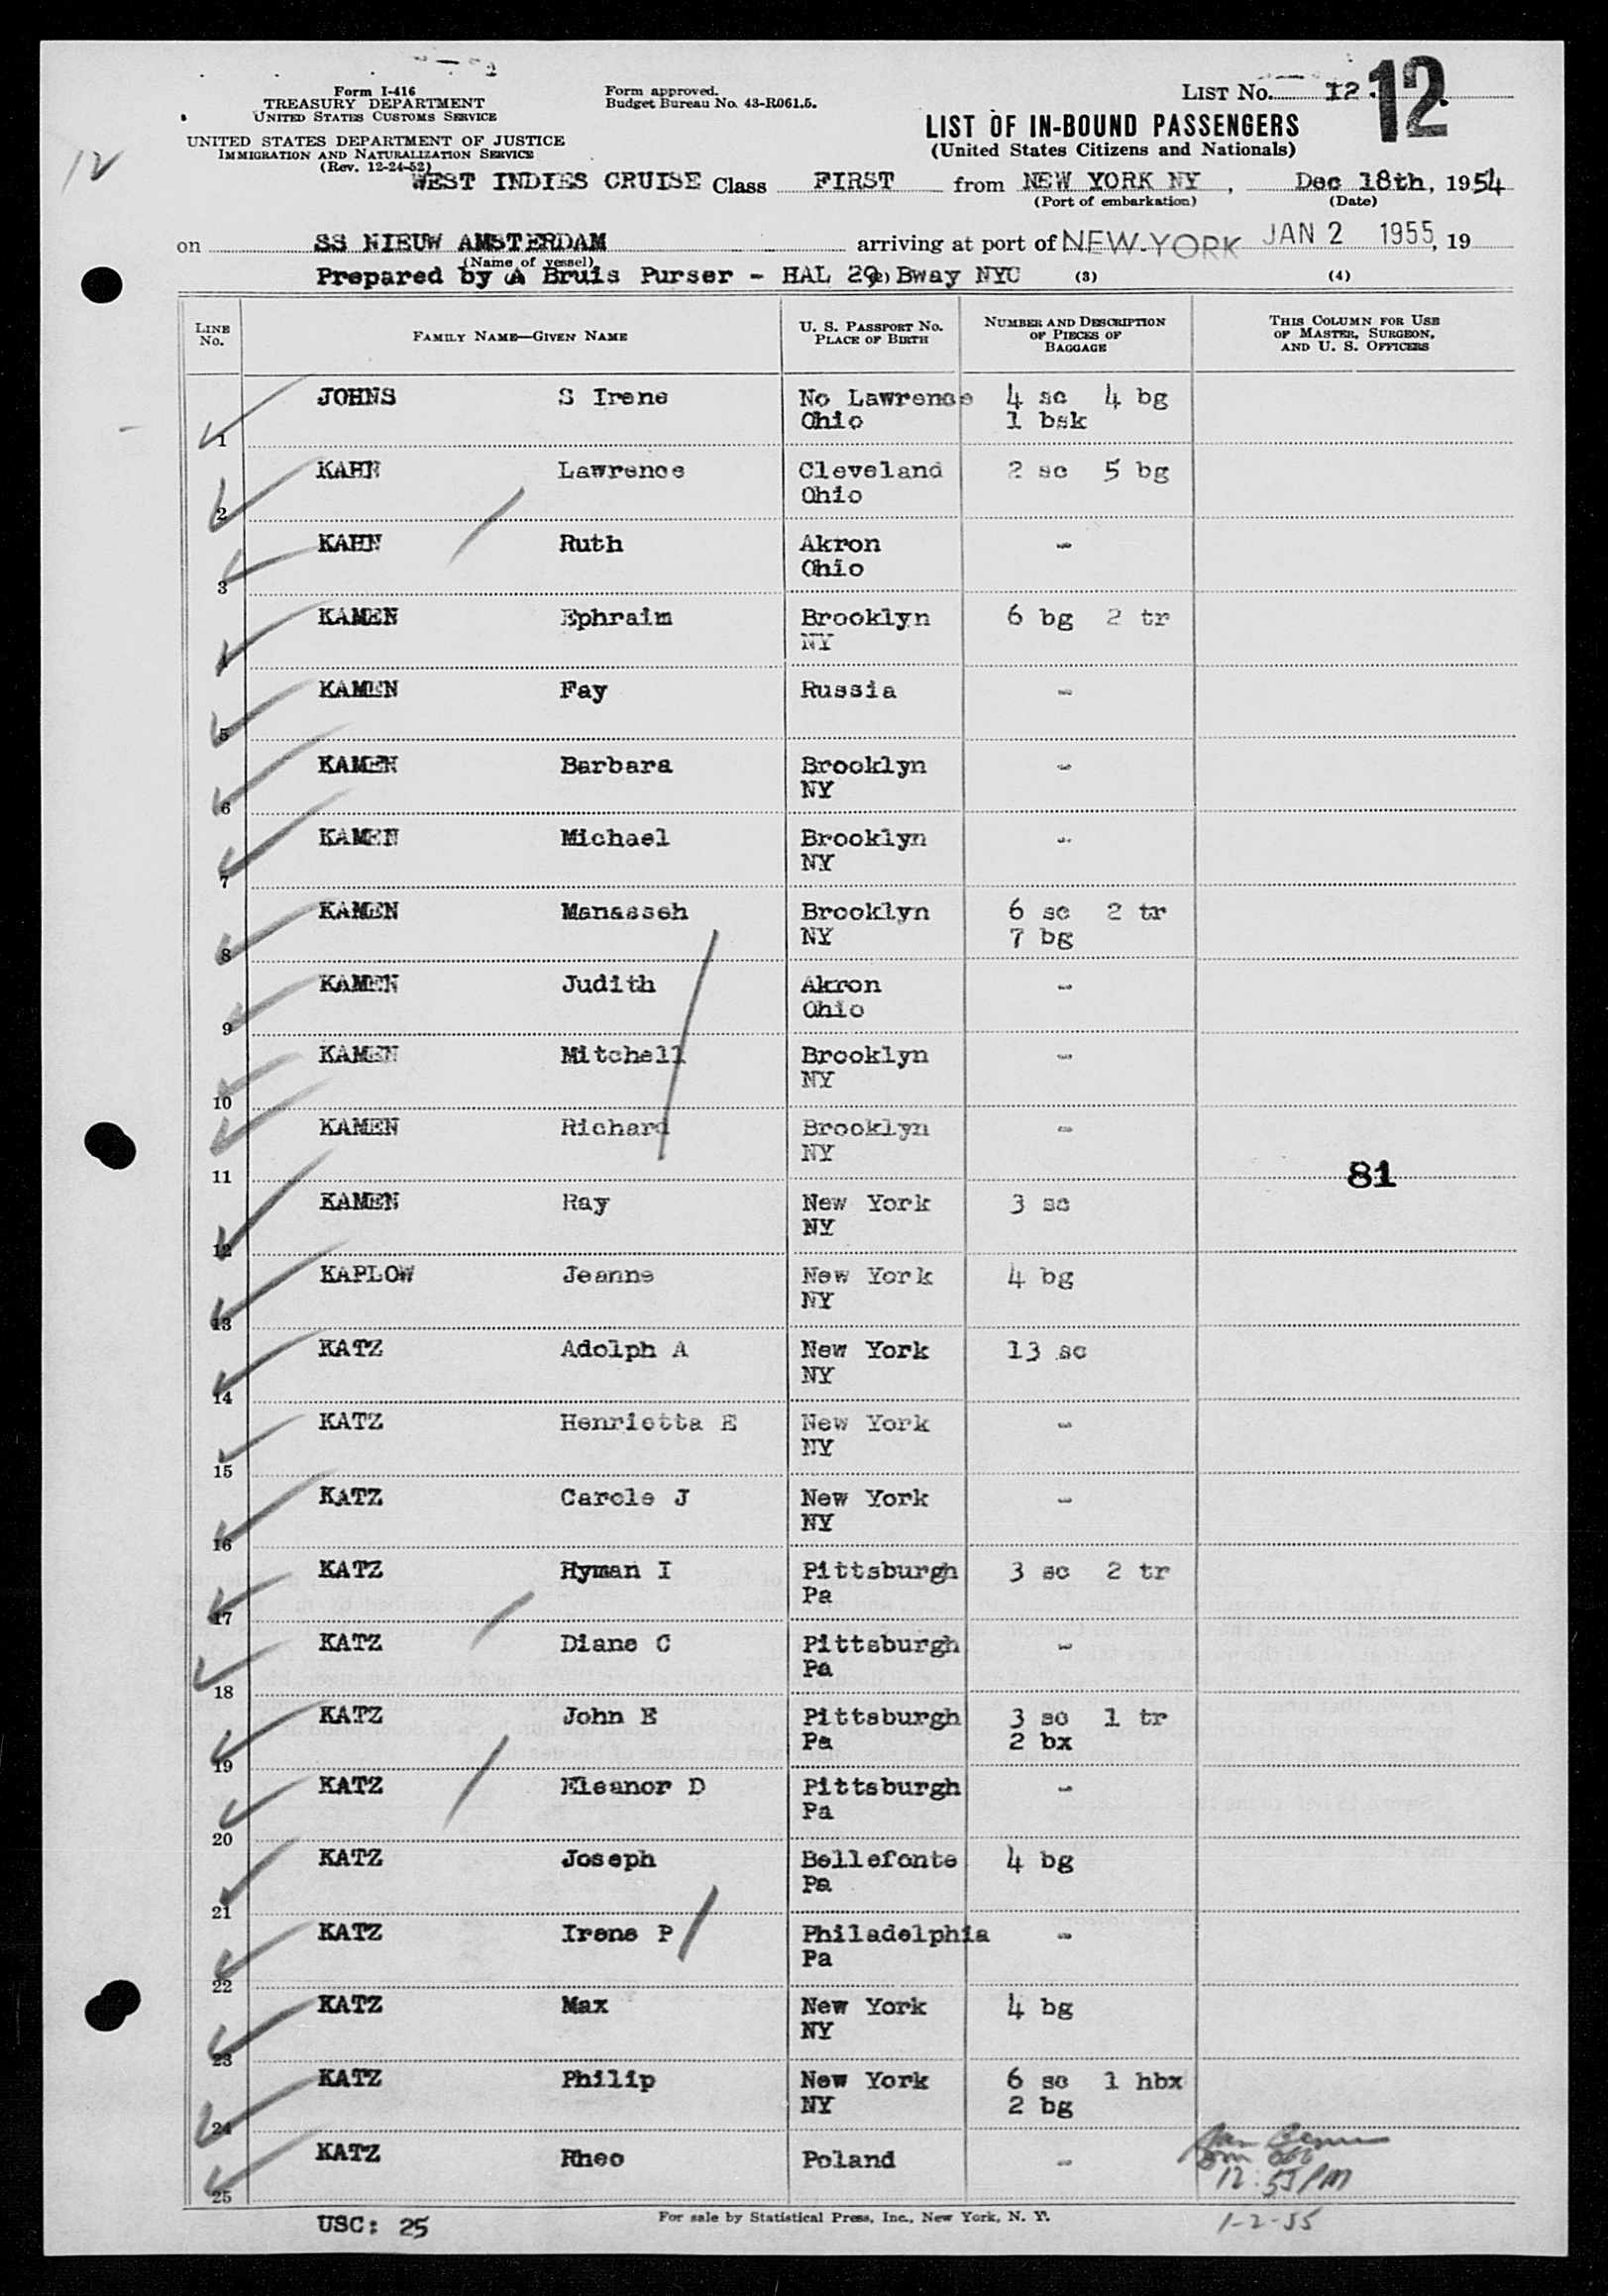 Form I-416
TREASURY DEPARTMENT
UNITED STATES CUSTOMS SERVICE
UNITED STATES DEPARTMENT OF JUSTICE
IMMIGRATION AND NATURALIZATION SERVICE
(Rev. 12-24-52)
Form approved.
Budget Bureau No. 43-R061.5.
LIST No. 12. 12
LIST OF IN-BOUND PASSENGERS
(United States Citizens and Nationals)
12
WEST INDIES CRUISE Class FIRST from NEW YORK NY, Dec 18th, 1954
(Port of embarkation) (Date)
on SS NIEUW AMSTERDAM arriving at port of NEW-YORK JAN 2 1955, 19
(Name of vessel)
Prepared by A Bruis Purser - HAL 29 Bway NYC (3) (4)
LINE No. FAMILY NAME—GIVEN NAME U. S. PASSPORT No. PLACE OF BIRTH NUMBER AND DESCRIPTION OF PIECES OF BAGGAGE THIS COLUMN FOR USE OF MASTER, SURGEON, AND U. S. OFFICERS
JOHNS S Irene No Lawrence 4 sc 4 bg
1 Ohio 1 bsk
KAHN Lawrence Cleveland 2 sc 5 bg
2 Ohio
KAHN Ruth Akron -
3 Ohio
KAMEN Ephraim Brooklyn 6 bg 2 tr
4 NY
KAMEN Fay Russia -
5
KAMEN Barbara Brooklyn -
6 NY
KAMEN Michael Brooklyn -
7 NY
KAMEN Manasseh Brooklyn 6 sc 2 tr
8 NY 7 bg
KAMEN Judith Akron -
9 Ohio
KAMEN Mitchell Brooklyn -
10 NY
KAMEN Richard Brooklyn -
11 NY
81
KAMEN Ray New York 3 sc
12 NY
KAPLOW Jeanne New York 4 bg
13 NY
KATZ Adolph A New York 13 sc
14 NY
KATZ Henrietta E New York -
15 NY
KATZ Carole J New York -
16 NY
KATZ Hyman I Pittsburgh 3 sc 2 tr
17 Pa
KATZ Diane C Pittsburgh -
18 Pa
KATZ John E Pittsburgh 3 sc 1 tr
19 Pa 2 bx
KATZ Eleanor D Pittsburgh -
20 Pa
KATZ Joseph Bellefonte 4 bg
21 Pa
KATZ Irene P Philadelphia -
22 Pa
KATZ Max New York 4 bg
23 NY
KATZ Philip New York 6 sc 1 hbx
24 NY 2 bg
KATZ Rheo Poland -
25
12:55 PM
1-2-55
USC: 25
For sale by Statistical Press, Inc., New York, N. Y.